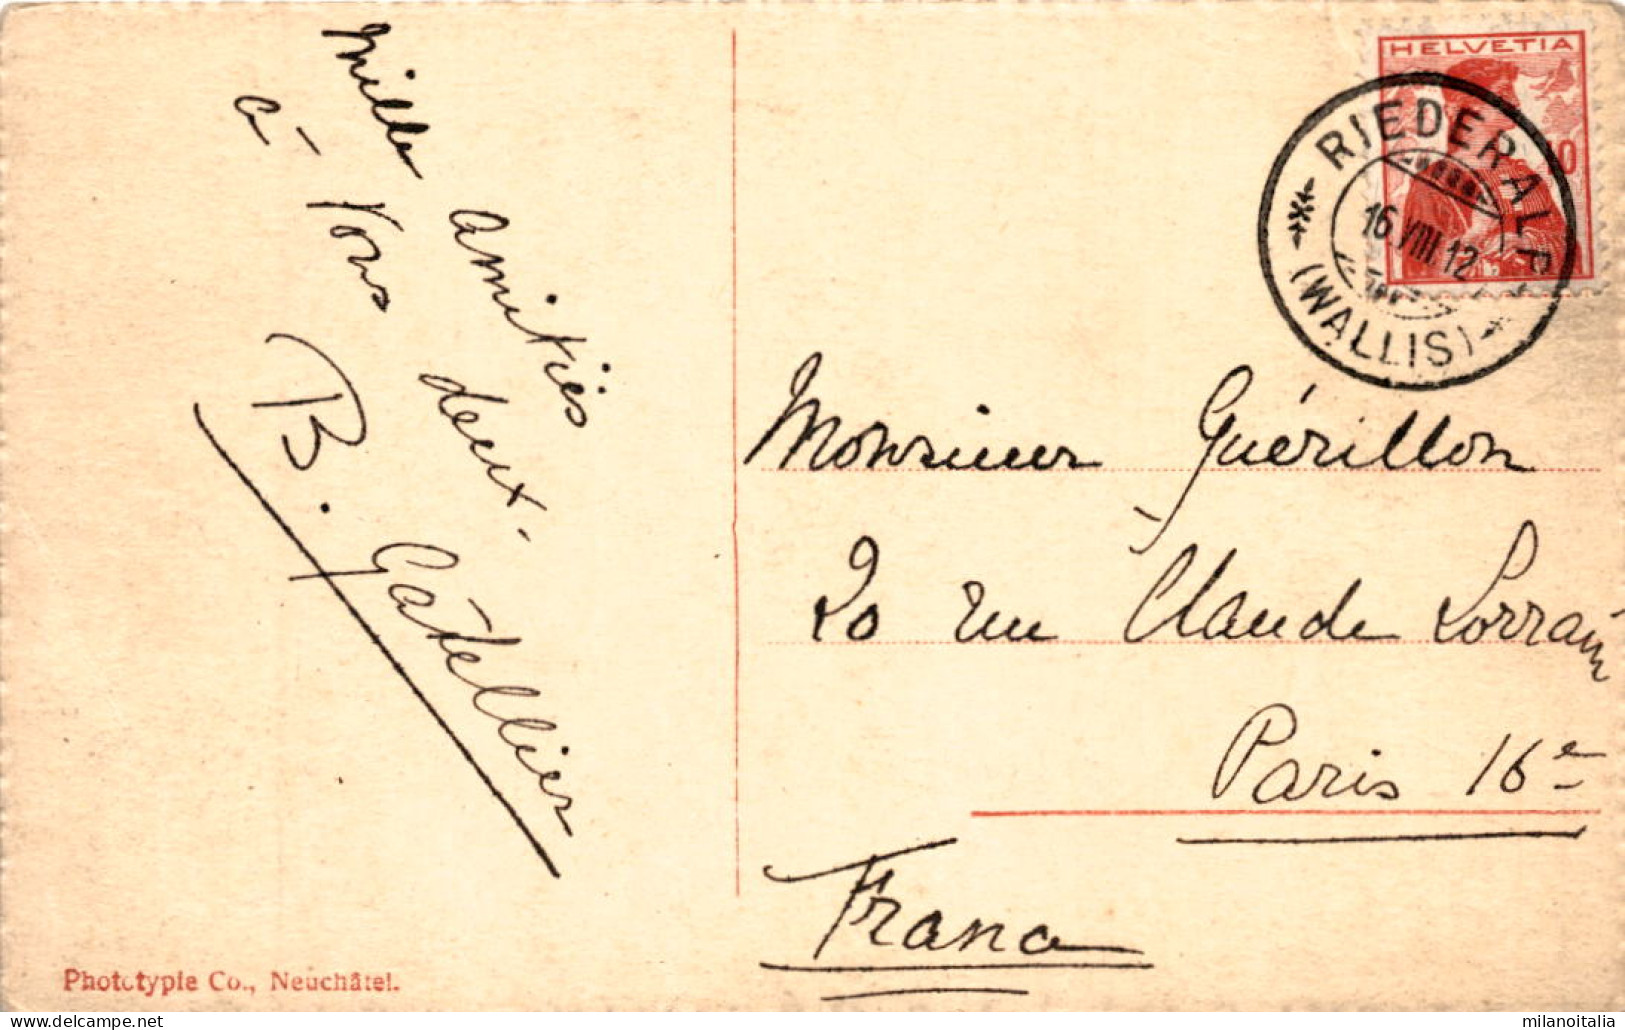 Mille amitiés
à vous deux -
B. Gatellier
HELVETIA
10
RIEDERALP
16 VIII 12
(WALLIS)
Monsieur Guérillon
20 rue Claude Lorrain
Paris 16e
France
Phototypie Co., Neuchâtel.
www.delcampe.net
milanoitalia